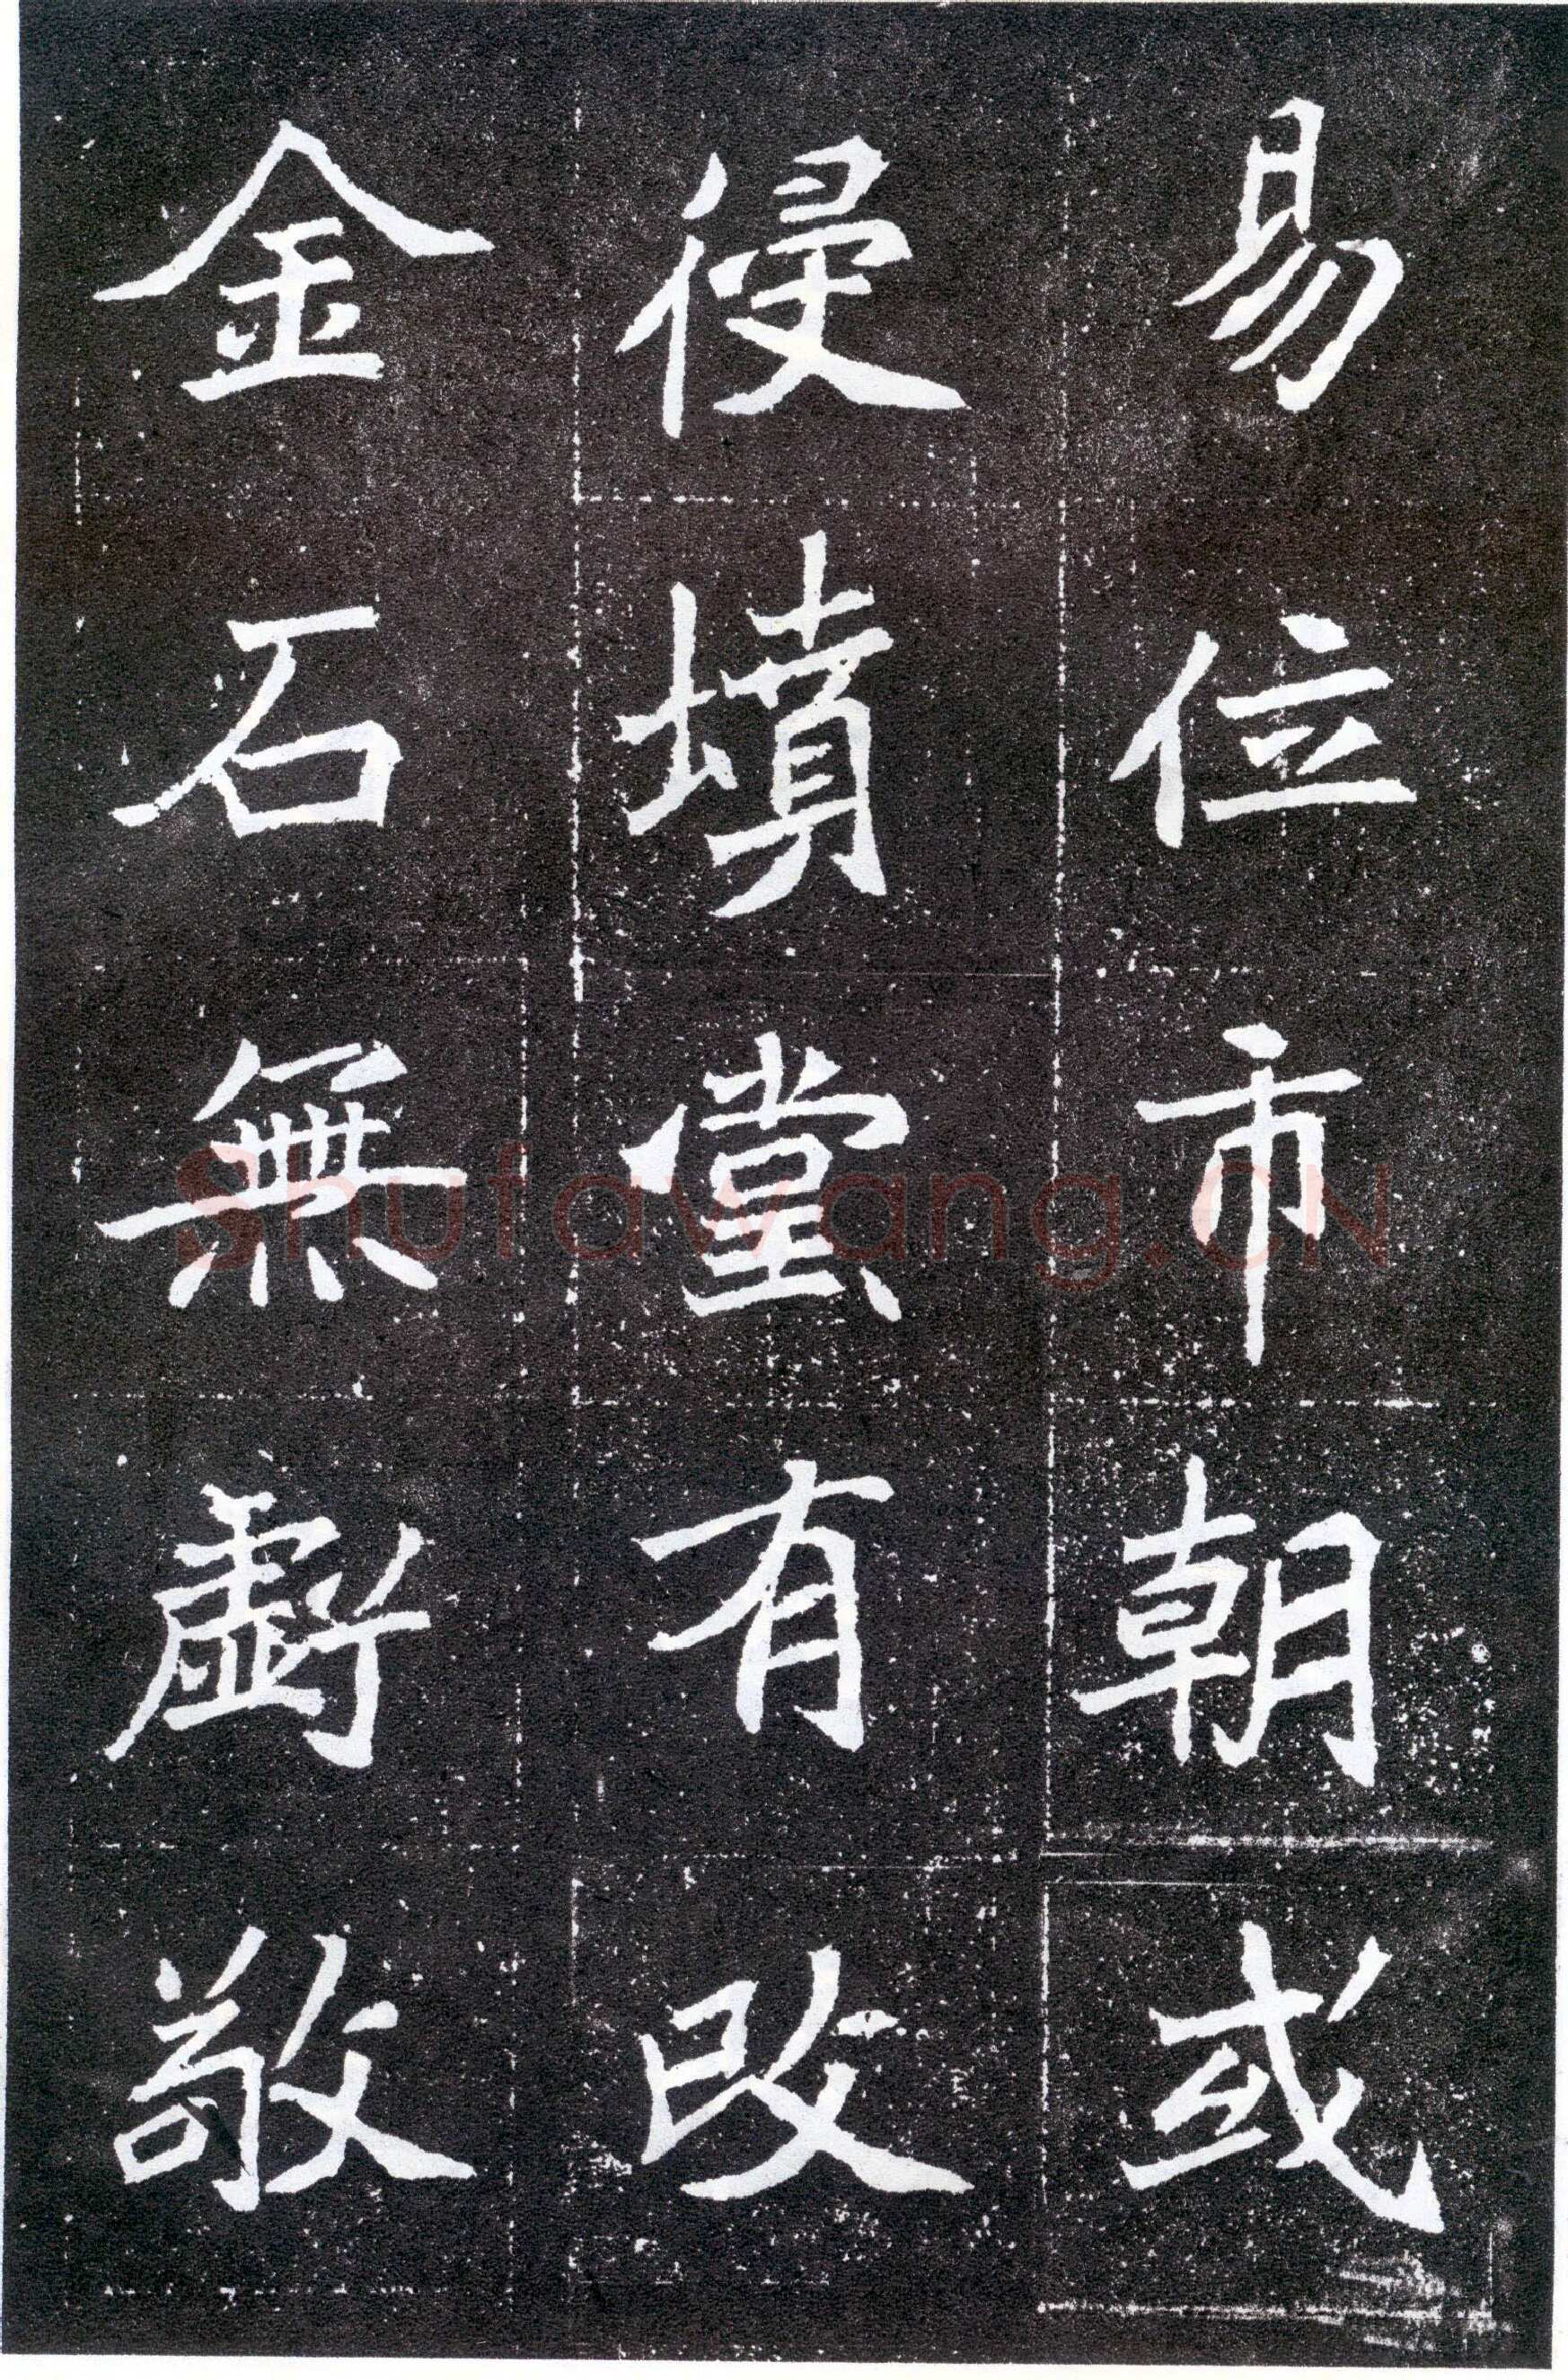 易位市朝或
侵墳堂有改
金石無虧敬
Shufawang.CN